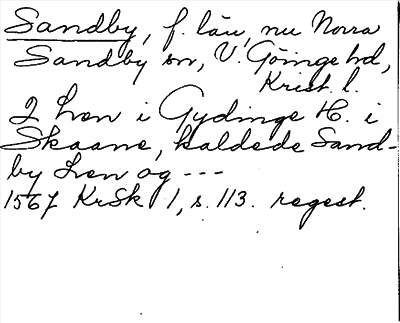 Sandby, f. län, nu Norra
Sandby sn, V. Göinge hd,
Krist. l.
2 Len i Gydinge H. i
Skaane, kaldede Sand-
by Len og ---
1567 KrSk 1, s. 113. regest.